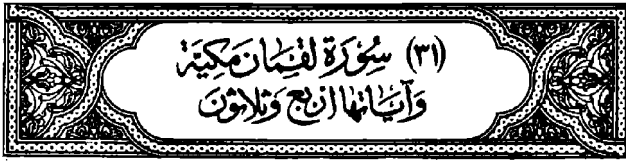 (٣١) سُورَة لقمَان مَكيَّة
وَآيَاتهَا اربَع وَثلاثونَ